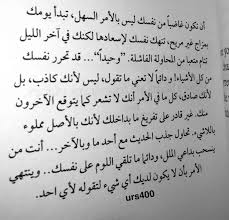 أن تكون غاضباً من نفسك ليس بالأمر السهل، تبدأ يومك
بمزاج غير مريح، تنهك نفسك لإسعادها لكنك في آخر الليل
تنام متعباً من المحاولة الفاشلة.. "وحيداً"... قد تحرر نفسك
من كل الأشياء! ودائماً لا تعني ما تقول، ليس لأنك كاذب، بل
لأنك صادق، كل ما في الأمر أنك لا تشعر كما يتوقع الآخرون
منك. غير قادر على تفريغ ما بداخلك لأنك بالأصل مملوء
باللاشيء. تحاول جذب الحديث مع أحد ما وبالآخر... أنت من
ينسحب بداعي الملل، ودائما ما تلقي اللوم على نفسك.. وينتهي
الأمر بأن لا يكون لديك أي شيء لتقوله لأي احد.
urs400